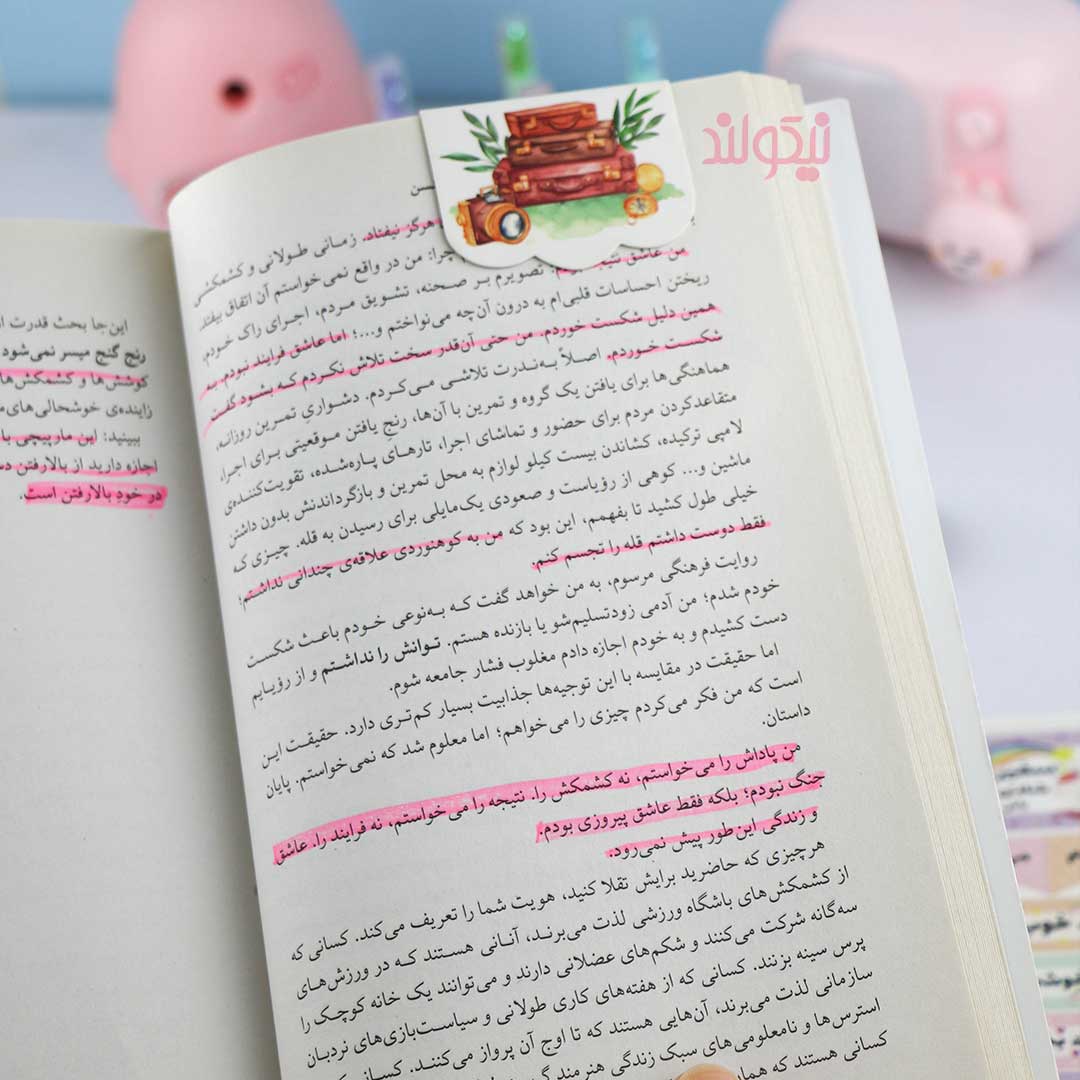 نیکولند
هرگز نیفتاد. زمانی طولانی و کشمکشی
من عاشق نتیجه بودم: تصویرم بر صحنه، تشویق مردم، اجرای راک خودم،
چرا: من در واقع نمی‌خواستم آن اتفاق بیفتد.
ریختن احساسات قلبی‌ام به درون آن‌چه می‌نواختم و...؛ اما عاشق فرایند نبودم. به
همین دلیل شکست خوردم. من حتی آن‌قدر سخت تلاش نکردم که بشود گفت
شکست خوردم. اصلاً به‌ندرت تلاشی می‌کردم. دشواریِ تمرین روزانه،
هماهنگی‌ها برای یافتن یک گروه و تمرین با آن‌ها، رنجِ یافتن موقعیتی برای اجرا،
متقاعدکردن مردم برای حضور و تماشای اجرا، تارهای پاره‌شده، تقویت‌کننده‌ی
لامپی ترکیده، کشاندن بیست کیلو لوازم به محل تمرین و بازگرداندنش بدون داشتن
ماشین و... کوهی از رؤیاست و صعودی یک‌مایلی برای رسیدن به قله. چیزی که
خیلی طول کشید تا بفهمم، این بود که من به کوهنوردی علاقه‌ی چندانی نداشتم؛
فقط دوست داشتم قله را تجسم کنم.
روایت فرهنگی مرسوم، به من خواهد گفت که به‌نوعی خودم باعث شکست
خودم شدم؛ من آدمی زودتسلیم‌شو یا بازنده هستم. توانش را نداشتم و از رؤیایم
دست کشیدم و به خودم اجازه دادم مغلوب فشار جامعه شوم.
اما حقیقت در مقایسه با این توجیه‌ها جذابیت بسیار کم‌تری دارد. حقیقت این
است که من فکر می‌کردم چیزی را می‌خواهم؛ اما معلوم شد که نمی‌خواستم. پایان
داستان.
من پاداش را می‌خواستم، نه کشمکش را. نتیجه را می‌خواستم، نه فرایند را. عاشق
جنگ نبودم؛ بلکه فقط عاشق پیروزی بودم.
و زندگی این‌طور پیش نمی‌رود.
هرچیزی که حاضرید برایش تقلا کنید، هویت شما را تعریف می‌کند. کسانی که
از کشمکش‌های باشگاه ورزشی لذت می‌برند، آنانی هستند که در ورزش‌های
سه‌گانه شرکت می‌کنند و شکم‌های عضلانی دارند و می‌توانند یک خانه کوچک را
پرس سینه بزنند. کسانی که از هفته‌های کاری طولانی و سیاست‌بازی‌های نردبان
سازمانی لذت می‌برند، آن‌هایی هستند که تا اوج آن پرواز می‌کنند. کسانی که
استرس‌ها و نامعلومی‌های سبک زندگی هنرمند
کسانی هستند که
این‌جا بحث قدرت
رنج گنج میسر نمی‌شود
کوشش‌ها و کشمکش‌ها
زاینده‌ی خوشحالی‌های
ببینید: این مارپیچی
اجازه دارید از بالارفتن
در خودِ بالارفتن است.